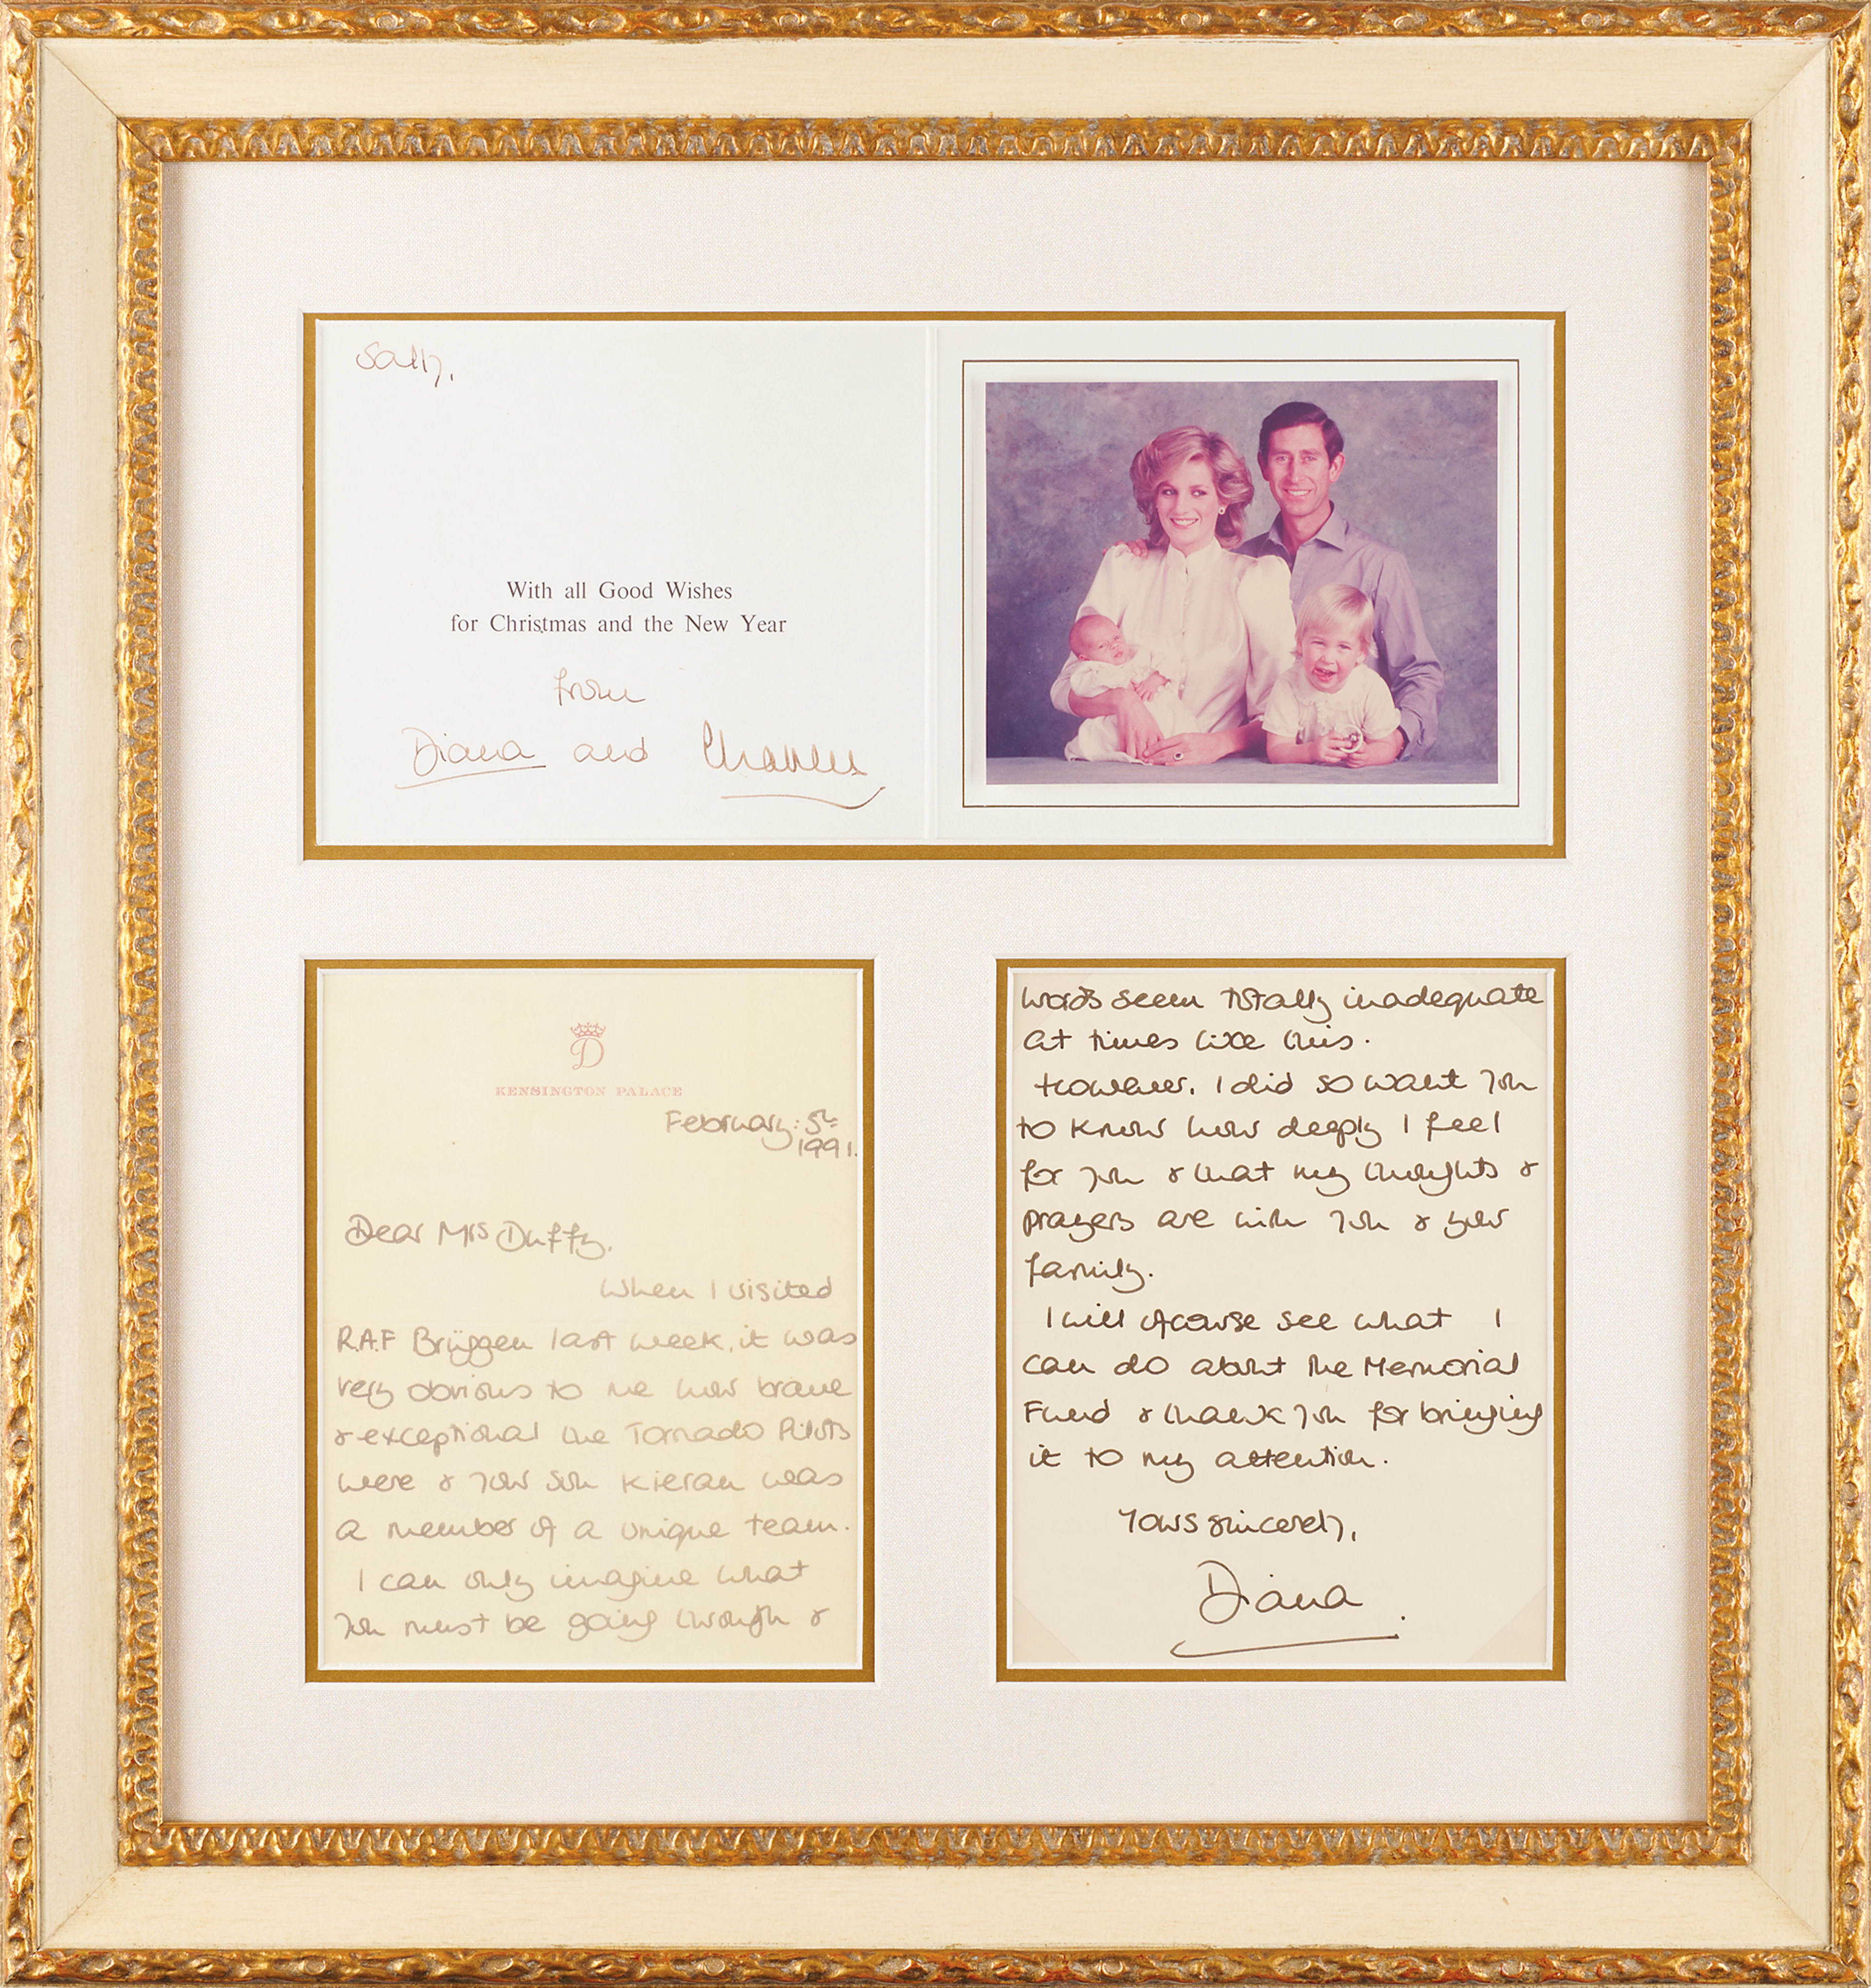 Sally,
With all Good Wishes
for Christmas and the New Year
from
Diana and Charles
D
KENSINGTON PALACE
February: 5th
1991.
Dear Mrs Duffy,
When I visited
R.A.F Brüggen last week, it was
very obvious to me how brave
& exceptional the Tornado Pilots
were & your son Kieran was
a member of a unique team.
I can only imagine what
you must be going through &
words seem totally inadequate
at times like this.
However, I did so want you
to know how deeply I feel
for you & that my thoughts &
prayers are with you & your
family.
I will ofcourse see what I
can do about the Memorial
Fund & thank you for bringing
it to my attention.
Yours sincerely,
Diana